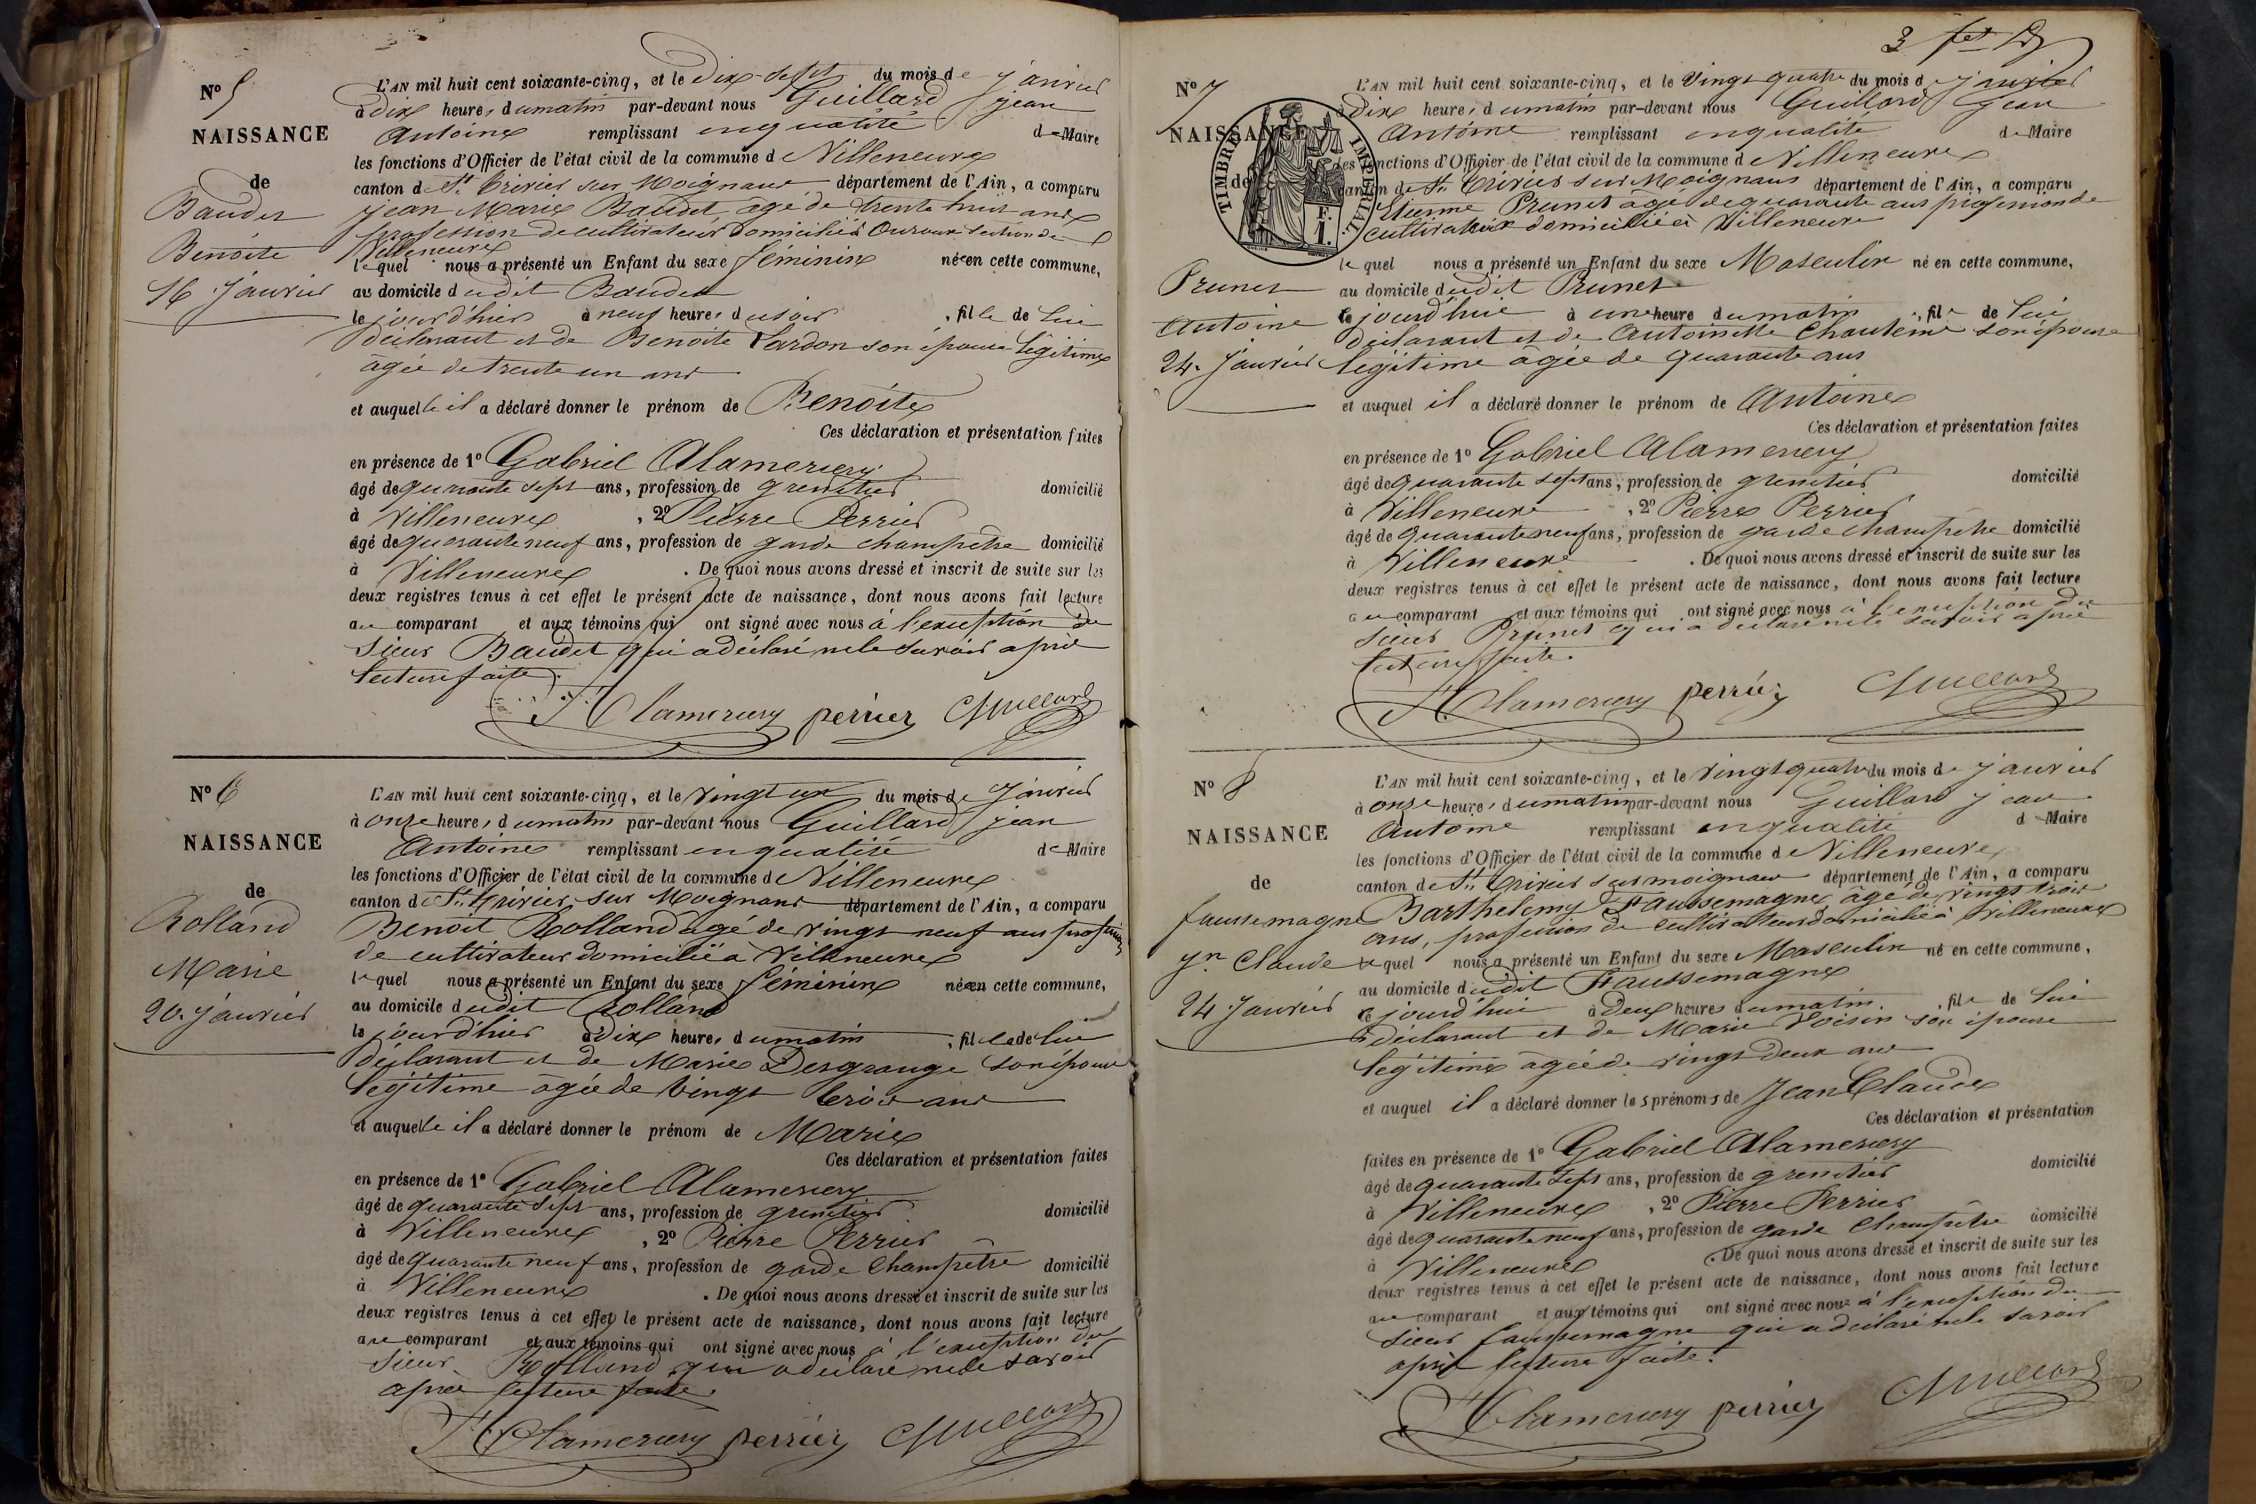 N° 5
NAISSANCE
de
Baudet
Benoite
16 Janvier
L'AN mil huit cent soixante-cinq, et le dix sept du mois de janvier
à dix heures du matin par-devant nous Guillard jean
Antoine remplissant en qualité de Maire
les fonctions d'Officier de l'état civil de la commune de Villeneuve
canton de St Trivier sur Moignans département de l'Ain, a comparu
jean Marie Baudet âgé de trente huit ans
profession de cultivateur domicilié à Ouroux section de
Villeneuve
lequel nous a présenté un Enfant du sexe féminin née en cette commune,
au domicile dudit Baudet
le jour d'hier à neuf heures du soir, fille de lui
déclarant et de Benoite Lardon son épouse légitime
âgée de trente un ans
et auquelle il a déclaré donner le prénom de Benoite
Ces déclaration et présentation faites
en présence de 1° Gabriel Alamercery
âgé de quarante sept ans, profession de grenetier domicilié
à Villeneuve, 2° Pierre Perrier
âgé de quarante neuf ans, profession de garde champêtre domicilié
à Villeneuve. De quoi nous avons dressé et inscrit de suite sur les
deux registres tenus à cet effet le présent acte de naissance, dont nous avons fait lecture
au comparant et aux témoins qui ont signé avec nous à l'exception du
sieur Baudet qui a déclaré ne le savoir après
lecture faite.
Alamercery perrier Guillard
N° 6
NAISSANCE
de
Rolland
Marie
20 janvier
L'AN mil huit cent soixante-cinq, et le vingt un du mois de Janvier
à onze heures du matin par-devant nous Guillard jean
Antoine remplissant en qualité de Maire
les fonctions d'Officier de l'état civil de la commune de Villeneuve
canton de St Trivier sur Moignans département de l'Ain, a comparu
Benoit Rolland âgé de vingt neuf ans profession
de cultivateur domicilié à Villeneuve
lequel nous a présenté un Enfant du sexe féminin née en cette commune,
au domicile dudit Rolland
le jour d'hier à dix heures du matin, fille de lui
déclarant et de Marie Desgrange son épouse
légitime âgée de vingt trois ans
et auquelle il a déclaré donner le prénom de Marie
Ces déclaration et présentation faites
en présence de 1° Gabriel Alamercery
âgé de quarante sept ans, profession de grenetier domicilié
à Villeneuve, 2° Pierre Perrier
âgé de quarante neuf ans, profession de garde champêtre domicilié
à Villeneuve. De quoi nous avons dressé et inscrit de suite sur les
deux registres tenus à cet effet le présent acte de naissance, dont nous avons fait lecture
au comparant et aux témoins qui ont signé avec nous à l'exception du
sieur Rolland qui a déclaré ne le savoir
après lecture faite
Alamercery perrier Guillard
3
N° 7
NAISSANCE
de
TIMBRE IMPÉRIAL
F. I.
Prunet
Antoine
24 Janvier
L'AN mil huit cent soixante-cinq, et le vingt quatre du mois de janvier
à dix heures du matin par-devant nous Guillard Jean
Antoine remplissant en qualité de Maire
les fonctions d'Officier de l'état civil de la commune de Villeneuve
canton de St Trivier sur Moignans département de l'Ain, a comparu
Etienne Prunet âgé de quarante ans profession de
cultivateur domicilié à Villeneuve
lequel nous a présenté un Enfant du sexe Masculin né en cette commune,
au domicile dudit Prunet
le jourd'hui à une heure du matin, fils de lui
déclarant et de Antoinette Chanteme son épouse
légitime âgée de quarante ans
et auquel il a déclaré donner le prénom de Antoine
Ces déclaration et présentation faites
en présence de 1° Gabriel Alamercery
âgé de quarante sept ans, profession de grenetier domicilié
à Villeneuve, 2° Pierre Perrier
âgé de quarante neuf ans, profession de garde champêtre domicilié
à Villeneuve. De quoi nous avons dressé et inscrit de suite sur les
deux registres tenus à cet effet le présent acte de naissance, dont nous avons fait lecture
au comparant et aux témoins qui ont signé avec nous à l'exception du
sieur Prunet qui a déclaré ne le savoir après
lecture faite.
Alamercery perrier Guillard
N° 8
NAISSANCE
de
faussemagne
Jn Claude
24 Janvier
L'AN mil huit cent soixante-cinq, et le vingt quatre du mois de janvier
à onze heures du matin par-devant nous Guillard jean
Antoine remplissant en qualité de Maire
les fonctions d'Officier de l'état civil de la commune de Villeneuve
canton de St Trivier sur moignans département de l'Ain, a comparu
Barthelemy Faussemagne âgé de vingt trois
ans, profession de cultivateur domicilié à Villeneuve
lequel nous a présenté un Enfant du sexe Masculin né en cette commune,
au domicile dudit Faussemagne
le jourd'hui à deux heures du matin, fils de lui
déclarant et de Marie Voisin son épouse
légitime âgée de vingt deux ans
et auquel il a déclaré donner les prénoms de Jean Claude
Ces déclaration et présentation
faites en présence de 1° Gabriel Alamercery
âgé de quarante sept ans, profession de grenetier domicilié
à Villeneuve, 2° Pierre Perrier
âgé de quarante neuf ans, profession de garde champêtre domicilié
à Villeneuve. De quoi nous avons dressé et inscrit de suite sur les
deux registres tenus à cet effet le présent acte de naissance, dont nous avons fait lecture
au comparant et aux témoins qui ont signé avec nous à l'exception du
sieur faussemagne qui a déclaré ne le savoir
après lecture faite.
Alamercery perrier Guillard